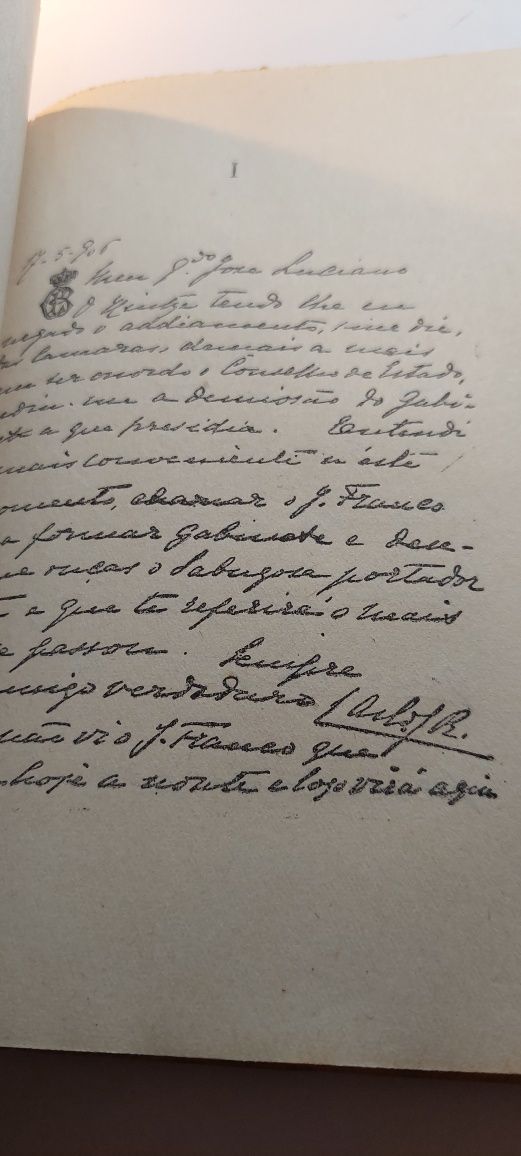 I
17-5-906
Meu q.do José Luciano
O Hintze tendo lhe eu
negado o addiamento, sine die,
das Camaras, demais a mais
sem ser ouvido o Conselho de Estado,
pediu-me a demissão do Gabi-
nete a que presidia. Entendi
mais conveniente n'este
momento, chamar o J. Franco
a formar gabinete e
que ouças o Sabugosa portador
e que te referirá o mais
se passou. Sempre
amigo verdadeiro Carlos R.
não vi o J. Franco que
hoje a noute e logo virá aqui